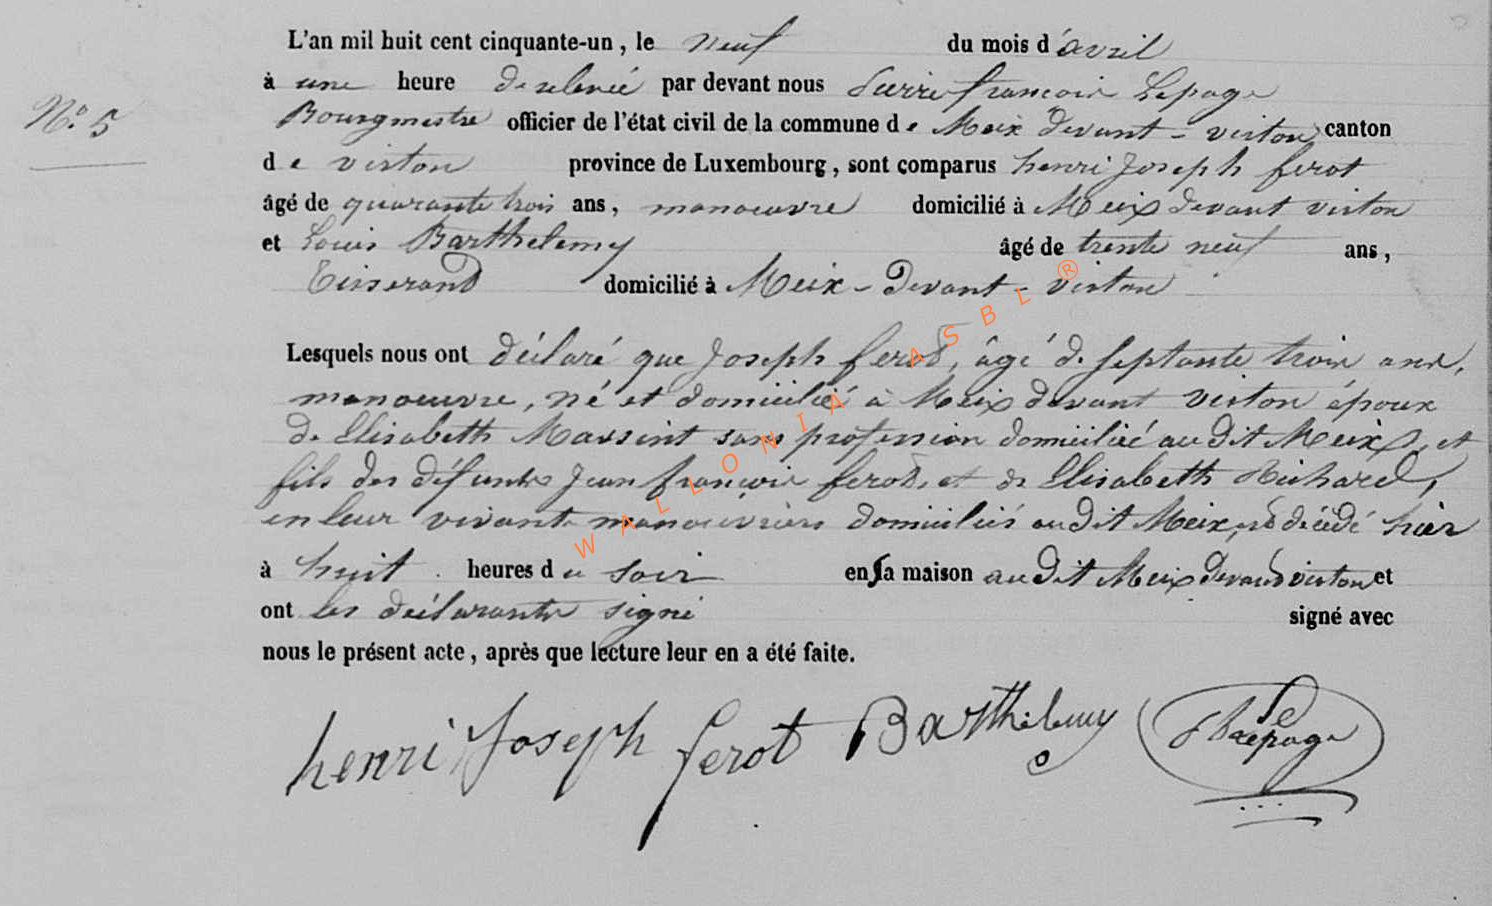 L'an mil huit cent cinquante-un, le neuf du mois d'avril
à une heure de relevée par devant nous Pierre françois Lepage
N.o 5
Bourgmestre officier de l'état civil de la commune de Meix devant - virton canton
de virton province de Luxembourg, sont comparus henri Joseph ferot
âgé de quarante trois ans, manoeuvre domicilié à Meix devant virton
et Louis Barthelemy âgé de trente neuf ans,
Tisserand domicilié à Meix - Devant - virton
Lesquels nous ont déclaré que Joseph ferot, âgé de septante trois ans,
manoeuvre, né et domicilié à Meix devant virton époux
de Elisabeth Massint sans profession domicilié au dit Meix, et
fils des défunts Jean françois ferot, et de Elisabeth Richard,
en leur vivant manouvriers domiciliés au dit Meix, est décédé hier
à huit heures du soir en sa maison au dit Meix devant virton et
ont les déclarants signé signé avec
nous le présent acte, après que lecture leur en a été faite.
henri Joseph ferot Barthélemy Lepage
WALLONIA ASBL ®